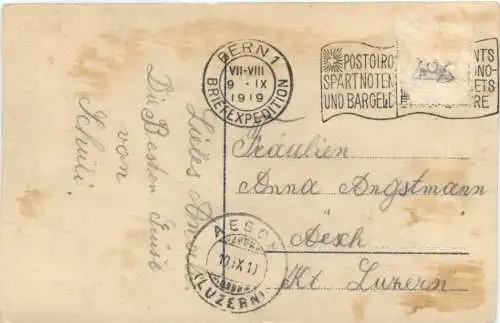 BERN 1
VII-VIII
9 · IX
1919
BRIEFEXPEDITION
POSTGIRO
SPART NOTEN
UND BARGELD
NTS
NO-
ETS
RE
Liebes
Die Besten Grüsse
von
Schüli.
Fräulien
Anna Angstmann
Aesch
Kt. Luzern
AESCH
10.IX.1
(LUZERN)